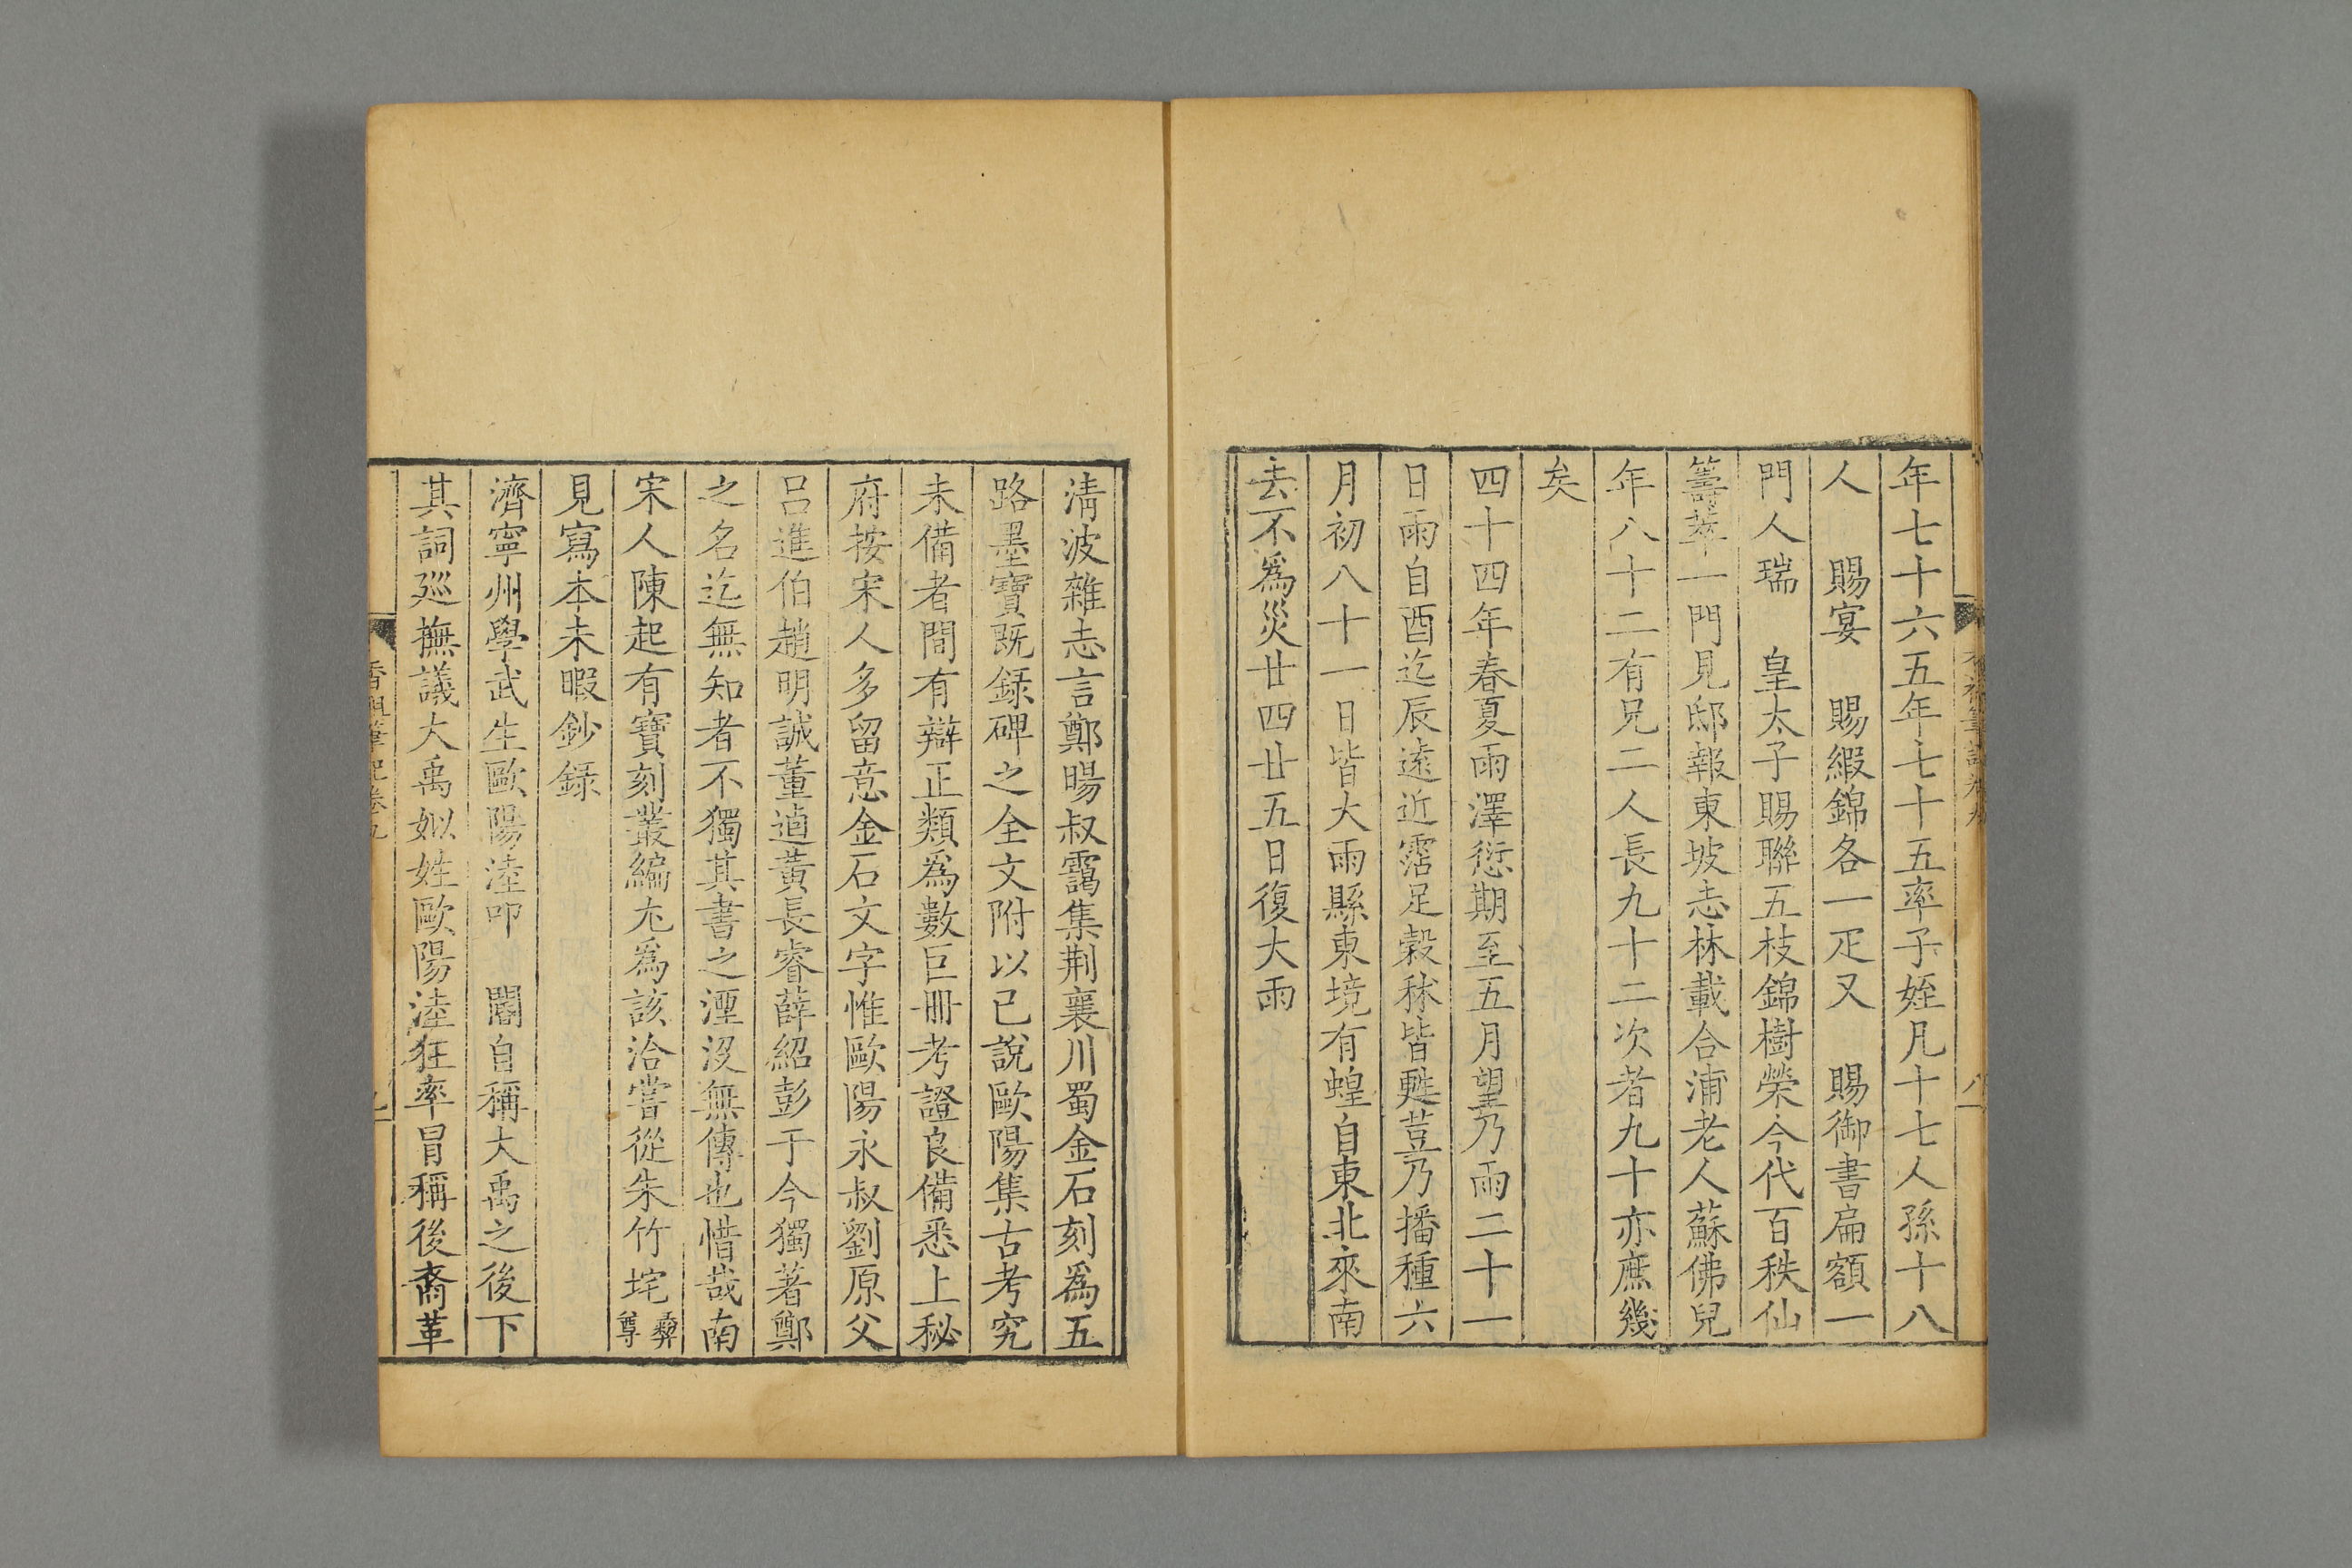 年七十六五年七十五率子姪凡十七人孫十八
人　賜宴　賜緞錦各一疋又　賜御書扁額一
門人瑞　皇太子賜聯五枝錦樹榮今代百秩仙
籌萃一門見邸報東坡志林載合浦老人蘇佛兒
年八十二有兄二人長九十二次者九十亦庶幾
矣
四十四年春夏雨澤愆期至五月望乃雨二十一
日雨自酉迄辰遠近霑足穀秫皆甦荳乃播種六
月初八十一日皆大雨縣東境有蝗自東北來南
去不爲災廿四廿五日復大雨
清波雜志言鄭暘叔靄集荆襄川蜀金石刻爲五
路墨寶既録碑之全文附以已說歐陽集古考究
未備者間有辯正類爲數巨冊考證良備悉上秘
府按宋人多留意金石文字惟歐陽永叔劉原父
吕進伯趙明誠董逌黃長睿薛紹彭于今獨著鄭
之名迄無知者不獨其書之湮沒無傳也惜哉南
宋人陳起有寶刻叢編尤爲該洽嘗從朱竹垞彛尊
見寫本未暇鈔録
濟寧州學武生歐陽淕叩　閽自稱大禹之後下
其詞廵撫議大禹姒姓歐陽淕狂率冒稱後裔革
香祖筆記卷九